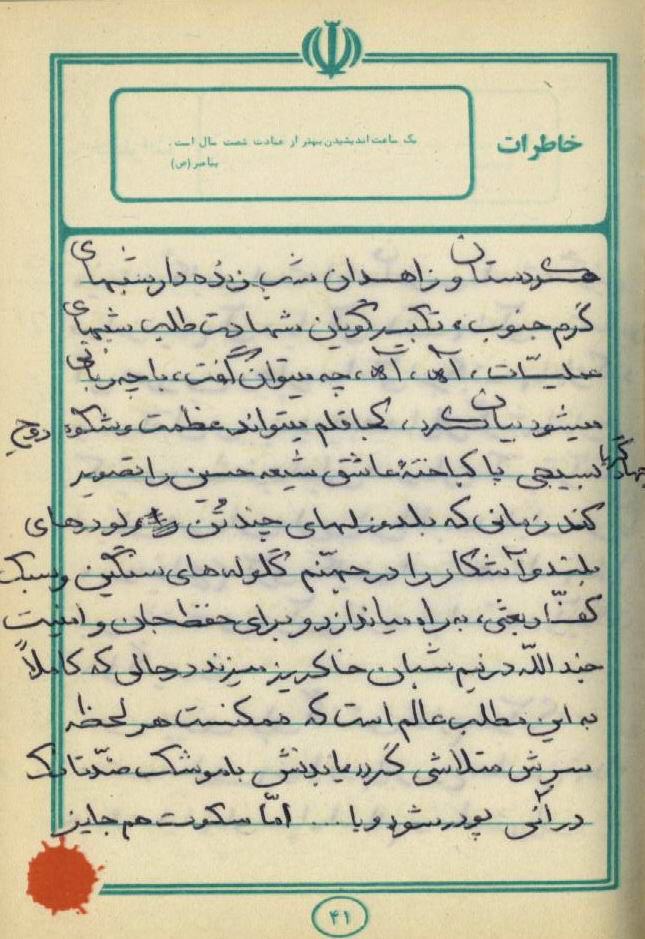 خاطرات
یک ساعت اندیشیدن بهتر از عبادت شصت سال است.
پیامبر (ص)
کردستان و زاهدان شب زنده دار شبهای
گرم جنوب، تکبیر گویان شهادت طلب شبهای
عملیّات، آه، آه، چه میتوان گفت، با چه زبانی
میشود بیان کرد، کجا قلم میتواند عظمت و شکوه روح
جهادگر یا بسیجی پا کباختهٔ عاشق شیعه حسین را تصویر
کند زمانی که بلدوزرهای چند تُن و لودرهای
بلند و آشکار را در جهنّم گلوله های سنگین و سبک
کفّار بعثی، به راه میاندازد و برای حفظ جان و امنیت
جند اللّه در نیم شبان خاکریز میزند در حالی که کاملاً
به این مطلب عالم است که ممکنست هر لحظه
سرش متلاشی گردد یا بدنش با موشک ضدّ تانک
در آنی پودر شود و یا ... امّا سکوت هم جایز
۴۱